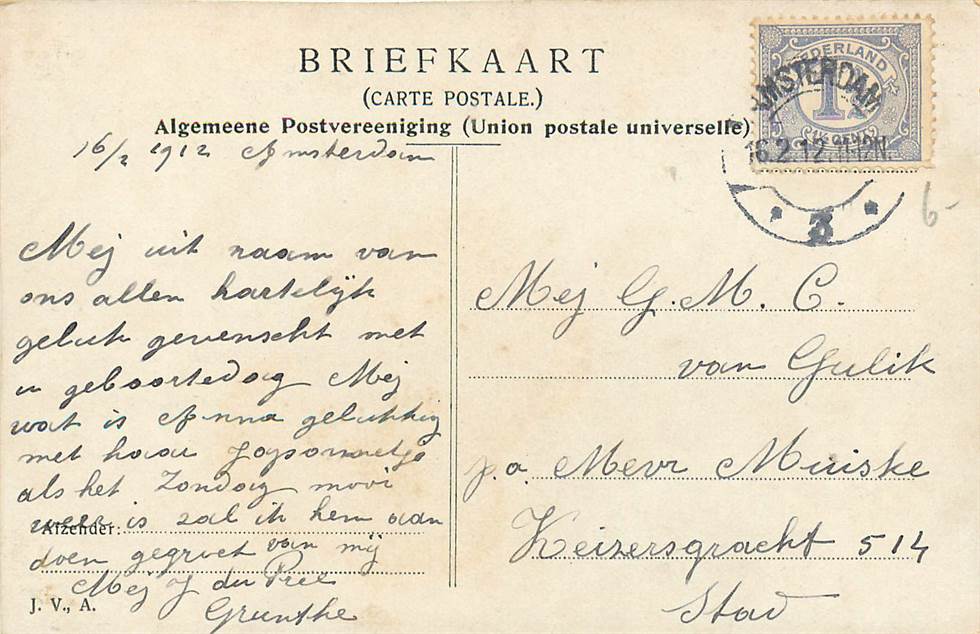 BRIEFKAART
(CARTE POSTALE.)
Algemeene Postvereeniging (Union postale universelle)
NEDERLAND
1½
1½ CENT
AMSTERDAM
16.2.12. 11-12N.
* 3 *
6-
16/2 1912 Amsterdam
Mej uit naam van
ons allen hartelijk
geluk gewenscht met
u geboortedag Mej
wat is Anna gelukkig
met haar
als het Zondag mooi
weer is zal ik hem aan
doen gegroet van mij
Mej J du Pree
Grunthe
Afzender:
J. V., A.
Mej G. M. C.
van Gulik
p.a. Mevr Muiske
Keizersgracht 514
Stad